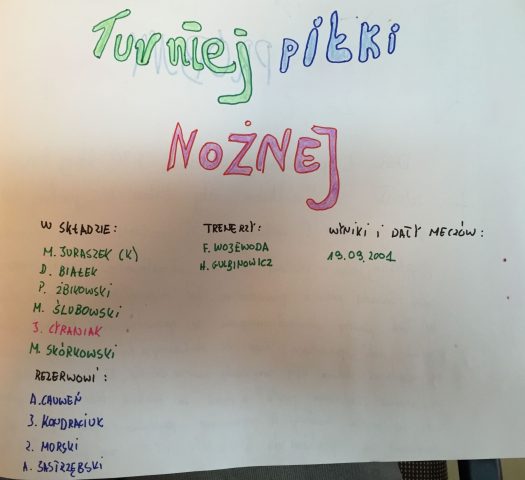 Turniej PIŁKI
NOŻNEJ
W SKŁADZIE:
M. JURASZEK (K)
D. BIAŁEK
P. ŻBIKOWSKI
M. ŚLUBOWSKI
J. CYRANIAK
M. SKÓRKOWSKI
REZERWOWI:
A. CAUWEŃ
J. KONDRACIUK
Z. MORSKI
A. JASTRZĘBSKI
TRENERZY:
F. WOJEWODA
H. GULBINOWICZ
WYNIKI I DATY MECZÓW:
19.09.2001